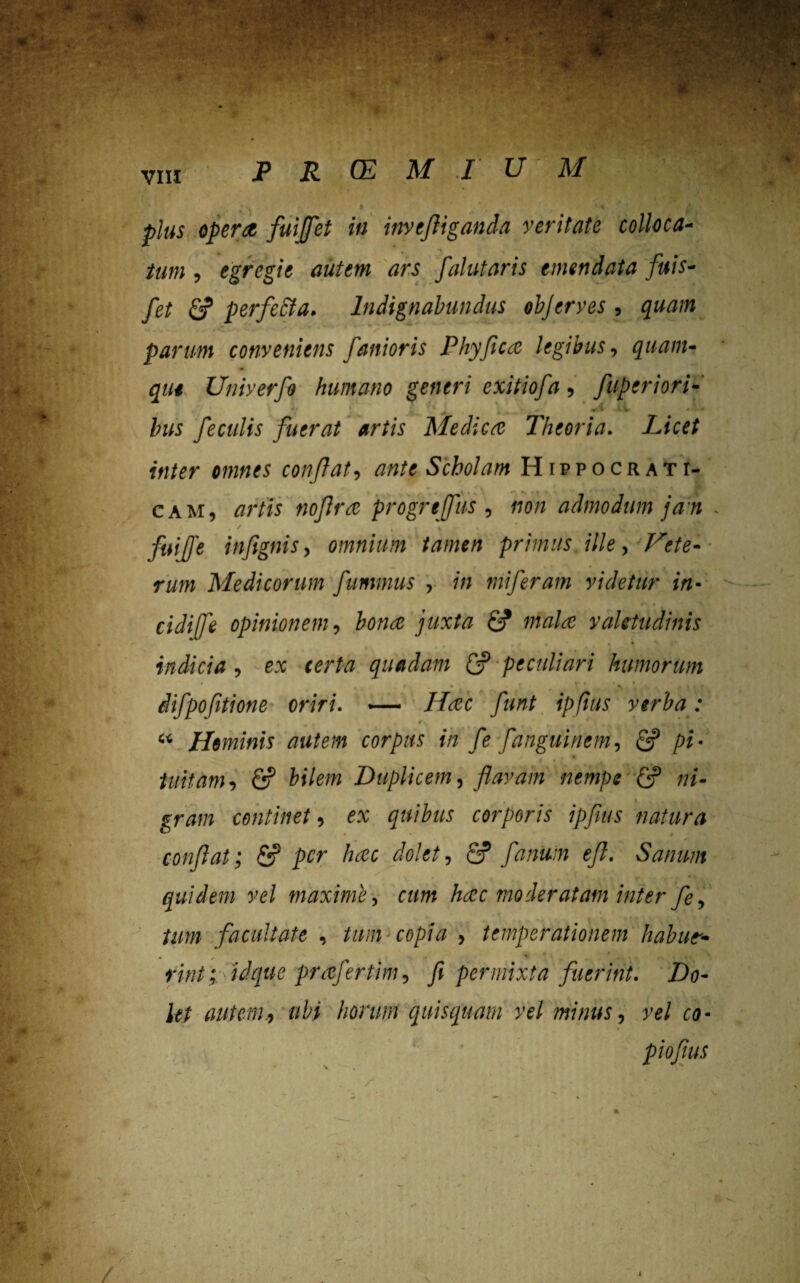 VIII PRŒMIUM
plus operæ fuiſſet in inveſtiganda veritate colloca-
tum, egregie autem ars ſalutaris emendata fuis-
ſet & perfecta. Indignabundus obſerves, quam
parum conveniens ſanioris Phyſicæ legibus, quam-
que Univerſo humano generi exitioſa, ſuperiori-
bus ſeculis fuerat artis Medicæ Theoria. Licet
inter omnes conſtat, ante Scholam HIPPOCRATI-
CAM, artis noſtræ progreſſus, non admodum jam
fuiſſe inſignis, omnium tamen primus ille, Vete-
rum Medicorum ſummus, in miſeram videtur in-
cidiſſe opinionem, bonæ juxta & malæ valetudinis
indicia, ex certa quadam & peculiari humorum
diſpoſitione oriri. — Hæc ſunt ipſius verba:
“ Hominis autem corpus in ſe ſanguinem, & pi-
tuitam, & bilem Duplicem, flavam nempe & ni-
gram continet, ex quibus corporis ipſius natura
conſtat; & per hæc dolet, & ſanum eſt. Sanum
quidem vel maximè, cum hæc moderatam inter ſe,
tum facultate, tum copia, temperationem habue-
rint; idque præſertim, ſi permixta fuerint. Do-
let autem, ubi horum quisquam vel minus, vel co-
pioſius